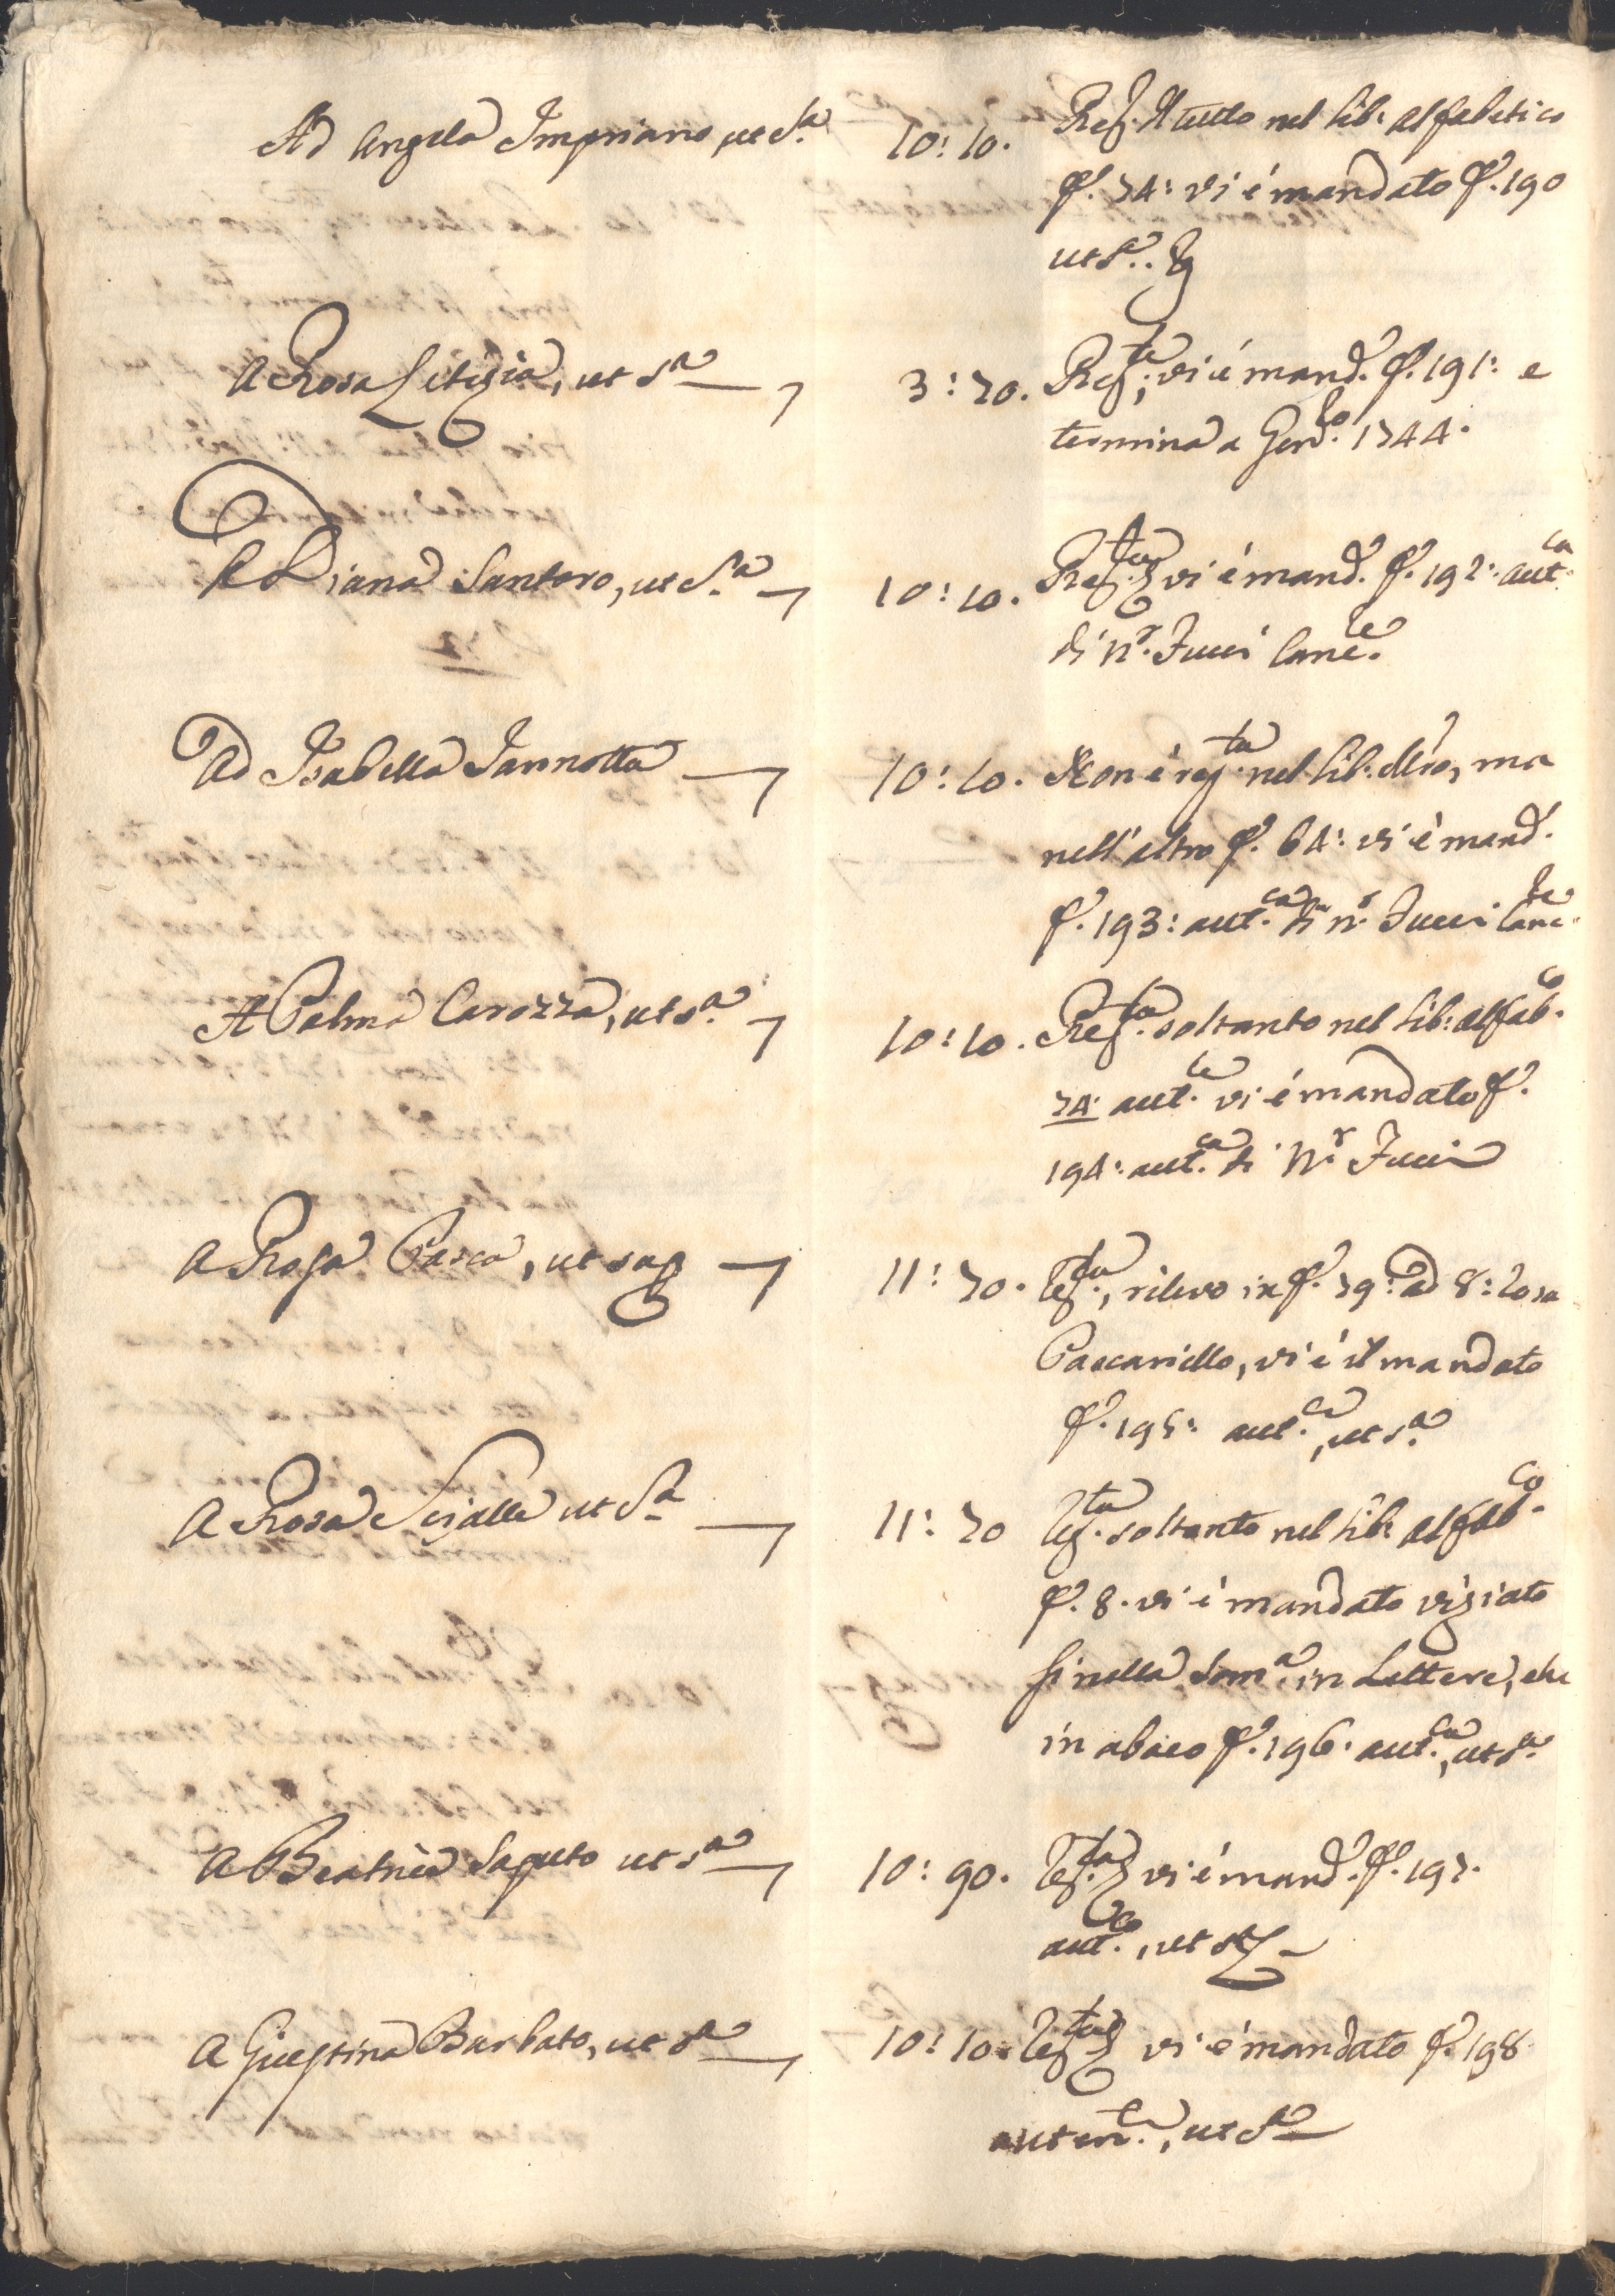 Ad Angela Impriano, ut S.ª 10:10. Reg. il tutto nel lib: alfabetico
f. 74: vi è mandato f. 190
ut S.ª
A Rosa Letizia, ut Sª 3:70. Reg.ta; vi è mand. f. 191: e
termina a Gen.o 1744.
A Diana Santoro, ut S.ª 10:10. Reg.ta vi è mand. f. 192: aut.ca
di Nr. Fucci Canc.le
Ad Isabella Iannotta 10:10. Non è reg.ta nel lib. , ma
nell'altro f. 64: vi è mand.
f. 193: aut.ca di nr. Fucci Canc.le
A Palma Carozza, ut s.ª 10:10. Reg.ta soltanto nel lib: alfab.co
74: aut.ce vi è mandato f.
194: aut.ca di Nr. Fucci
A Rosa Pasca, ut sup 11:70. Reg.ta, rilevo in f. 79: ad 8: Rosa
Pascariello, vi è il mandato
f. 195: aut.ca, ut s.ª
A Rosa Scialla ut Sª 11:70 Reg.ta soltanto nel lib: alfab.co
f. 8. vi è mandato viziato
sì nella som.ª in Lettere, che
in abaco f. 196. aut.ca, ut s.ª
A Beatrice Saputo ut sª 10:90. Reg.ta vi è mand. f. 197.
aut.ca, ut s.ª
A Giustina Barbato, ut Sª 10:10. Reg.ta vi è mandato f. 198
auten.ca, ut Sª